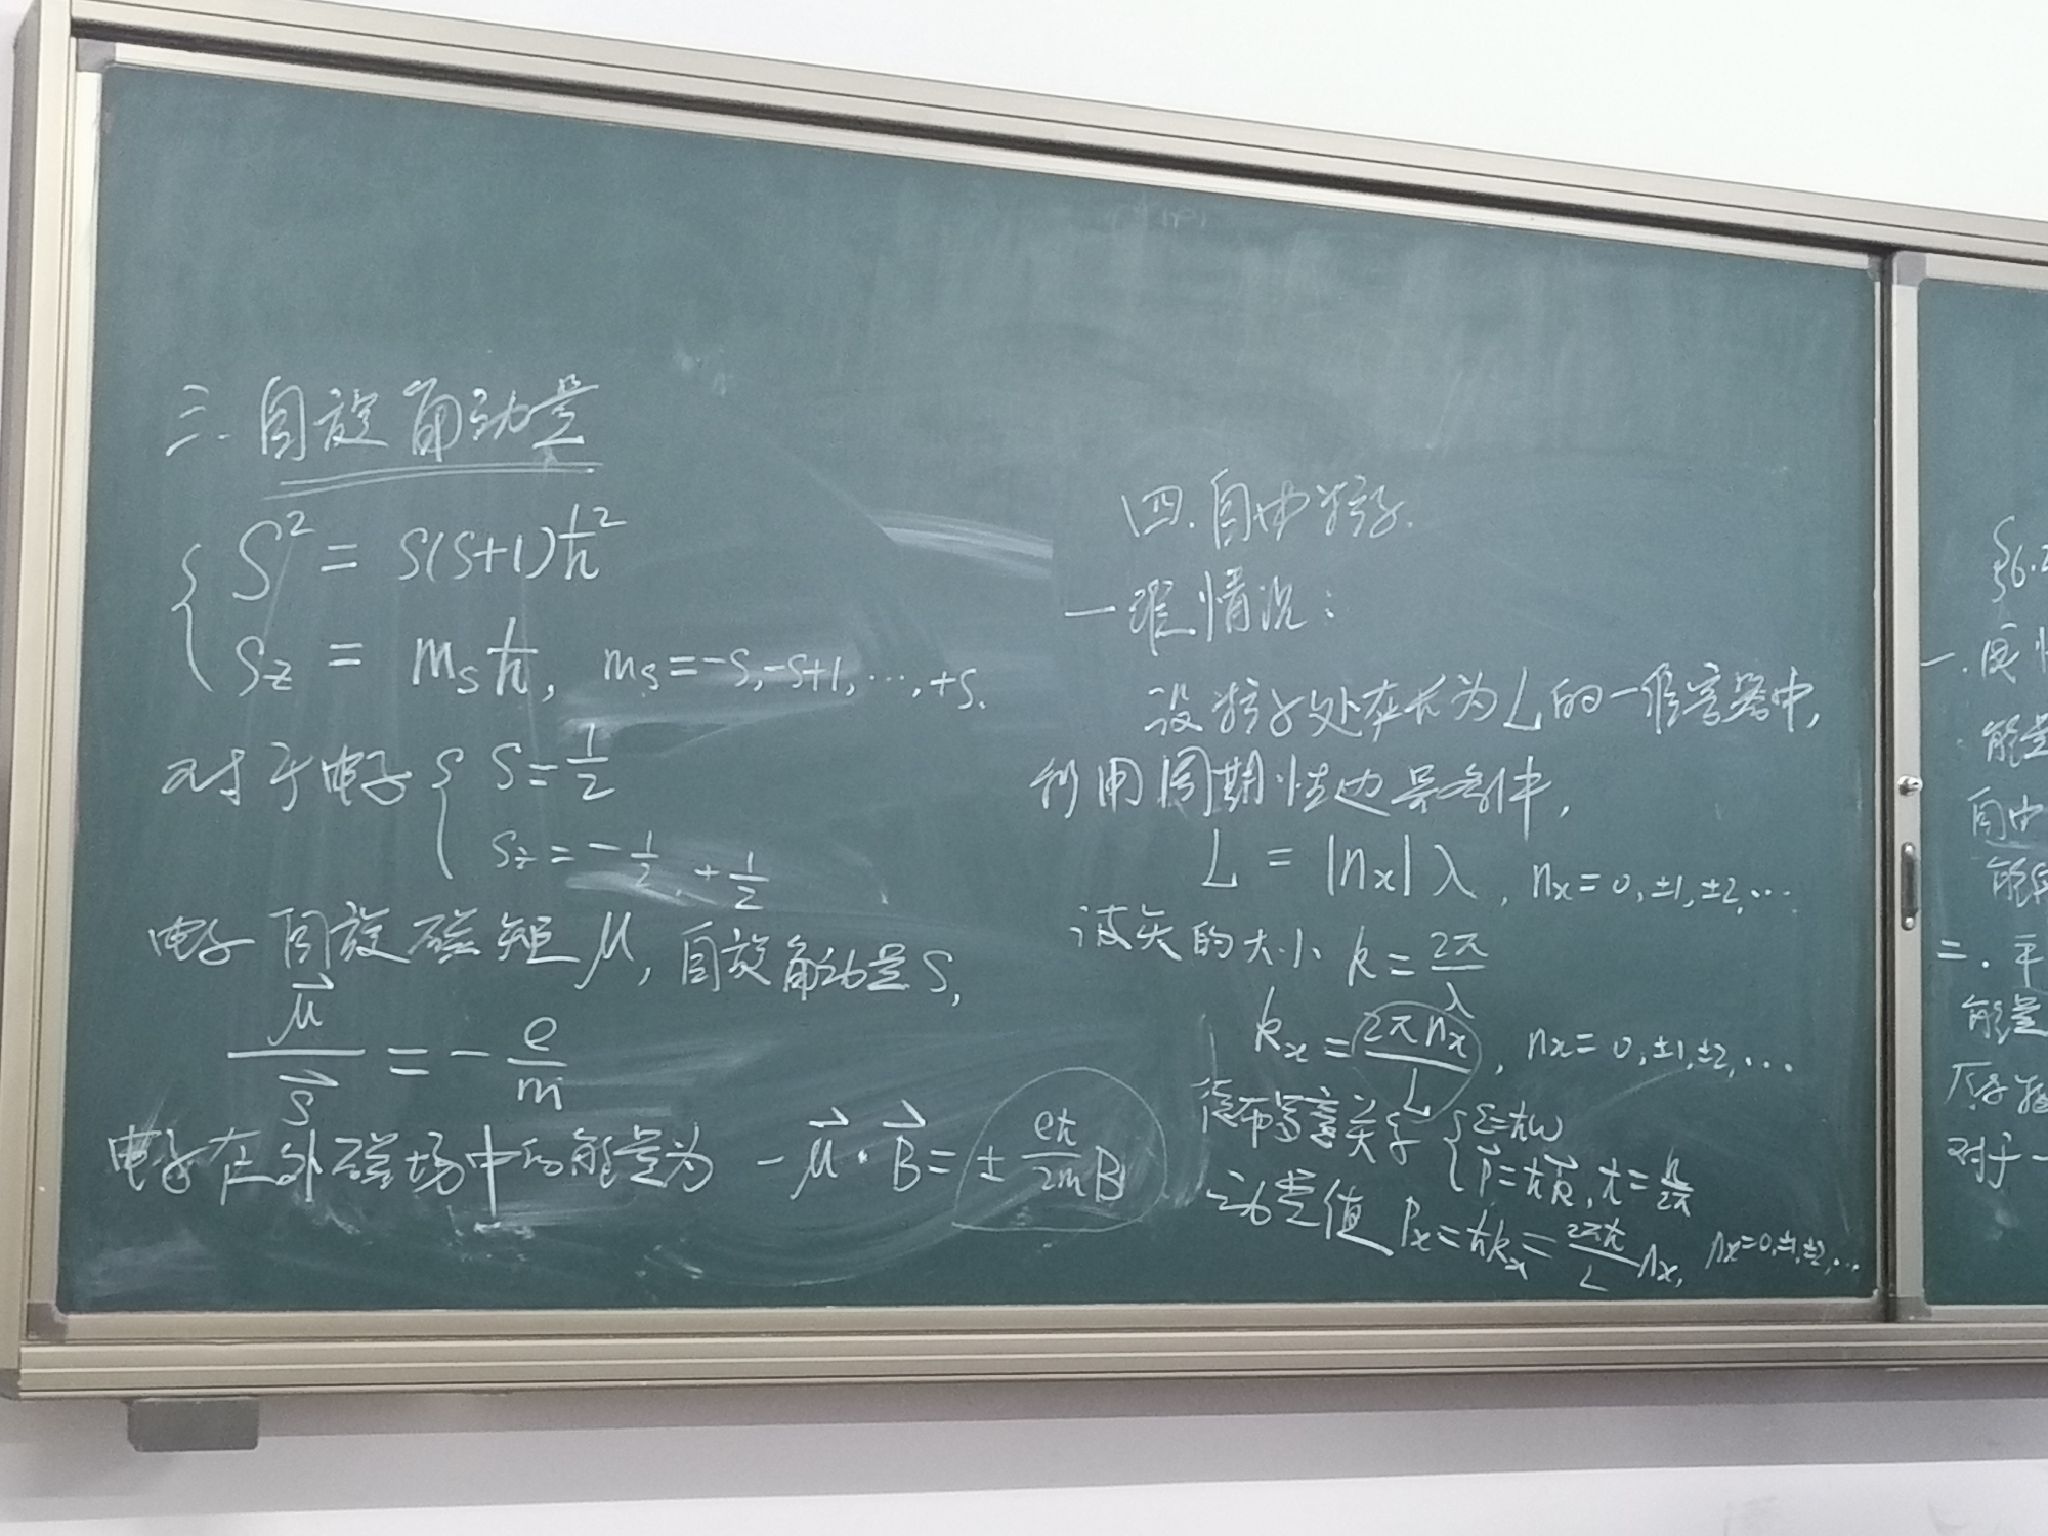 三.自旋角动量
S² = S(S+1)ħ²
Sz = msħ, ms=-S,-S+1,…,+S.
对于电子 { S=1/2
Sz=-1/2,+1/2
电子自旋磁矩μ,自旋角动量S,
μ⃗/S⃗ = -e/m
电子在外磁场中的能量为 -μ⃗·B⃗=±eħ/2m B
四.自由粒子.
一维情况：
设粒子处在长为L的一维容器中,
利用周期性边界条件,
L = |nx|λ, nx=0,±1,±2,…
波矢的大小 k=2π/λ
kx=2πnx/L, nx=0,±1,±2,…
德布罗意关系 { ε=ħω
p⃗=ħk⃗, ħ=h/2π
动量值 Px=ħkx=2πħ/L nx, nx=0,±1,±2,…
§6.2
一.
能量
自由
二.平
能量
对于一